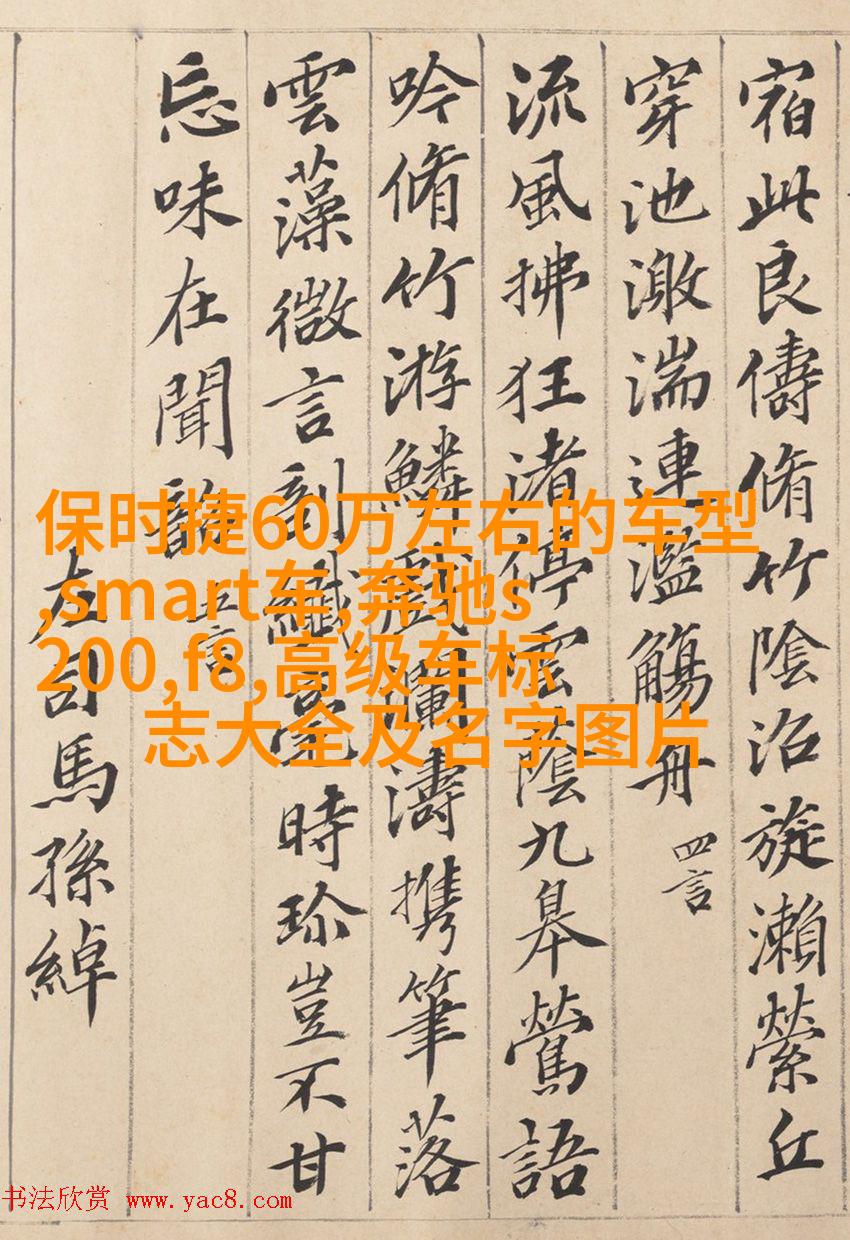 宿此良儔脩竹陰沼旋瀨縈丘
穿池激湍連濫觴舟 四言
流風拂狂渚停雲蔭九皋鶯語
吟脩竹游鱗戲瀾濤携筆落
雲藻微言剖纖毫時珍豈不甘
忘味在聞韶 五言
左司馬孫綽
保时捷60万左右的车型
,smart车,奔驰s
200,f8,高级车标
志大全及名字图片
书法欣赏 www.yac8.com